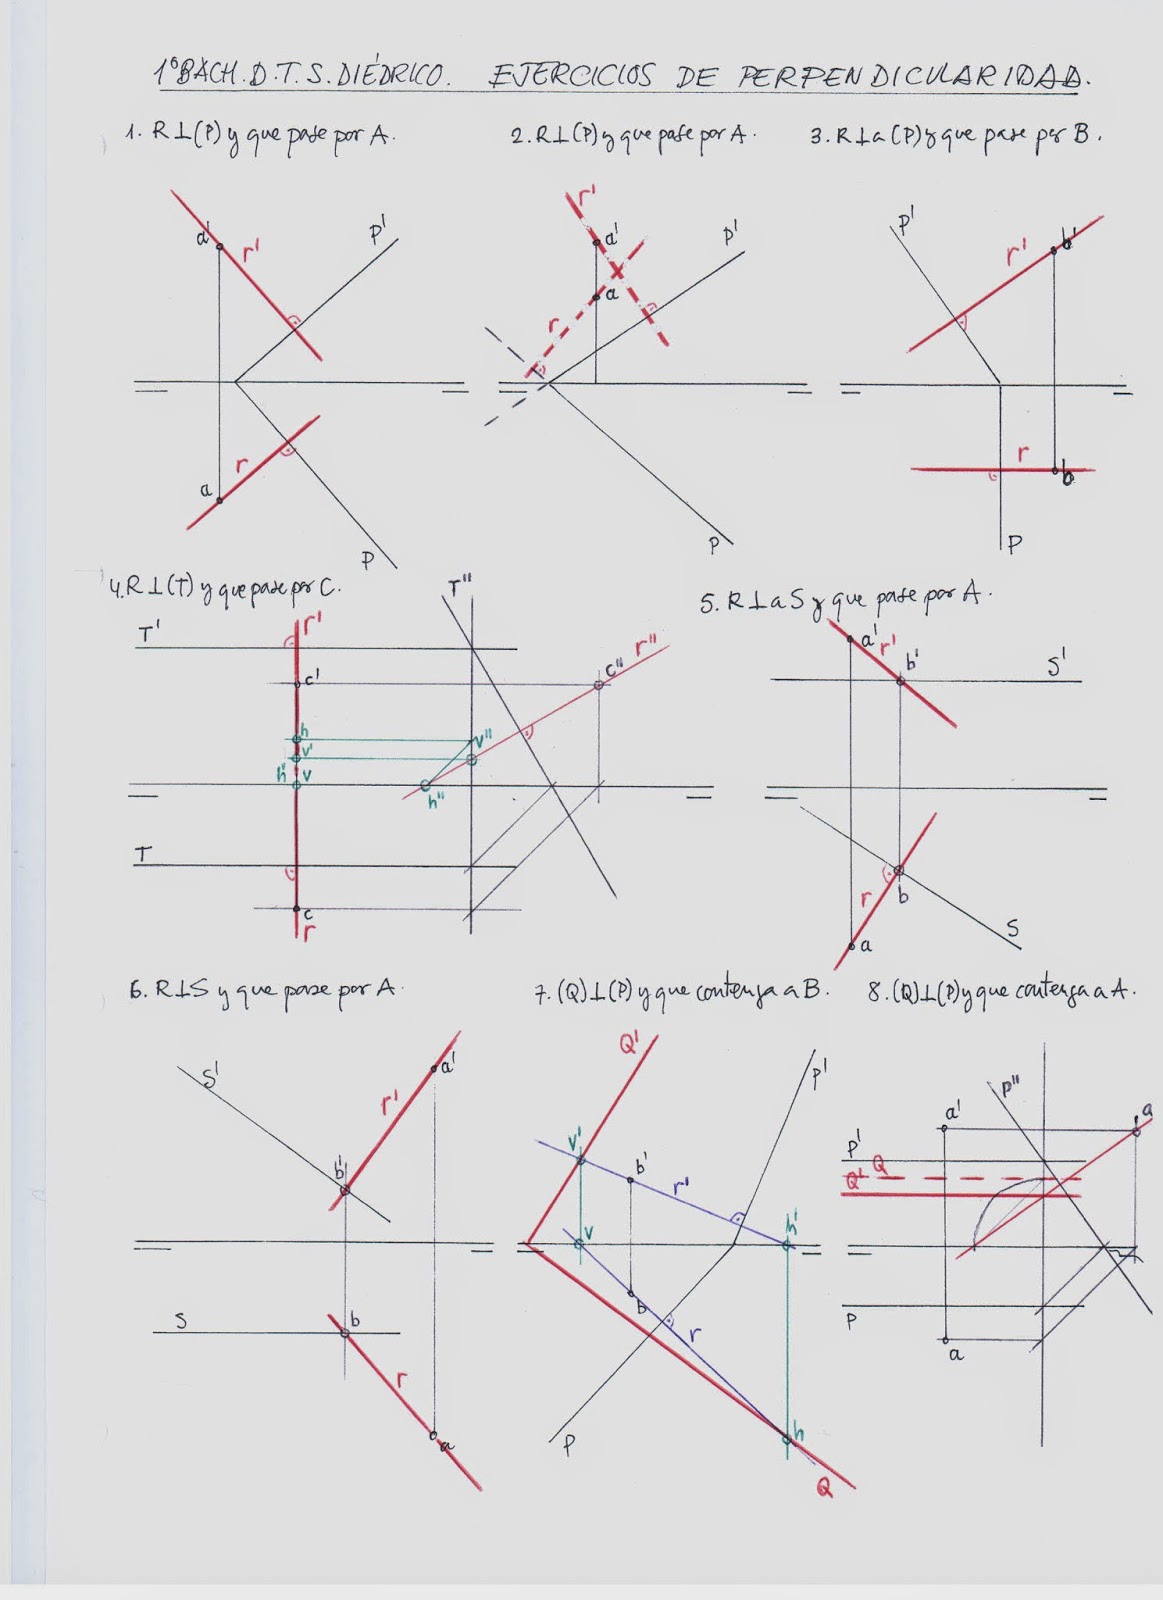 1ºBACH. D.T. S. DIÉDRICO. EJERCICIOS DE PERPENDICULARIDAD.
1. R⊥(P) y que pase por A.
2. R⊥(P) y que pase por A.
3. R⊥a (P) y que pase por B.
a' r' P'
r a P
r' a' P'
a r
P
P' r' b'
r b
P
4. R⊥(T) y que pase por C.
T''
T' r' r''
c' c''
h v''
v'
h' v h''
T
c
r
5. R⊥a S y que pase por A.
a' r' b' S'
r b S
a
6. R⊥S y que pase por A.
S' a'
r'
b'
S b
r
a
7. (Q)⊥(P) y que contenga a B.
Q' P'
v' b' r'
v h'
b r
P h
Q
8. (Q)⊥(P) y que contenga a A.
P''
a' a
P' Q
Q'
P
a